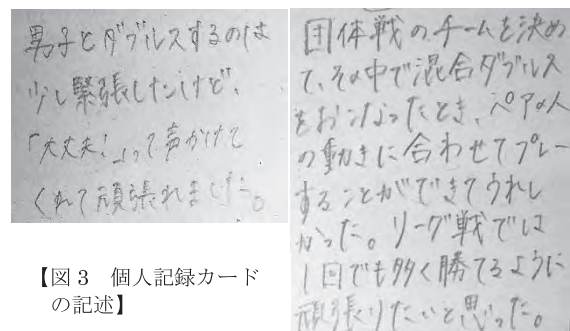 男子とダブルスするのは
少し緊張したけど、
「大丈夫！」って声かけて
くれて頑張れました。
【図３　個人記録カード
の記述】
団体戦のチームを決め
て、その中で混合ダブルス
をおこなったとき、ペアの人
の動きに合わせてプレー
することができてうれし
かった。リーグ戦では
1回でも多く勝てるように
頑張りたいと思った。